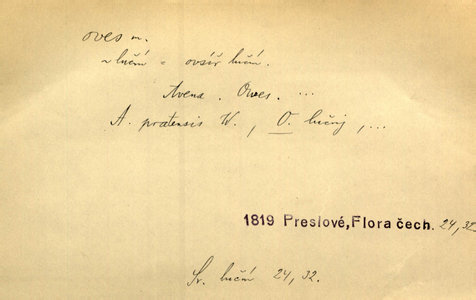 oves m.
~ luční = ovsíř luční.
Avena. Owes. ...
A. pratensis W., O. lučnj, ...
1819 Preslové, Flora čech. 24, 32
Sv. luční 24, 32.